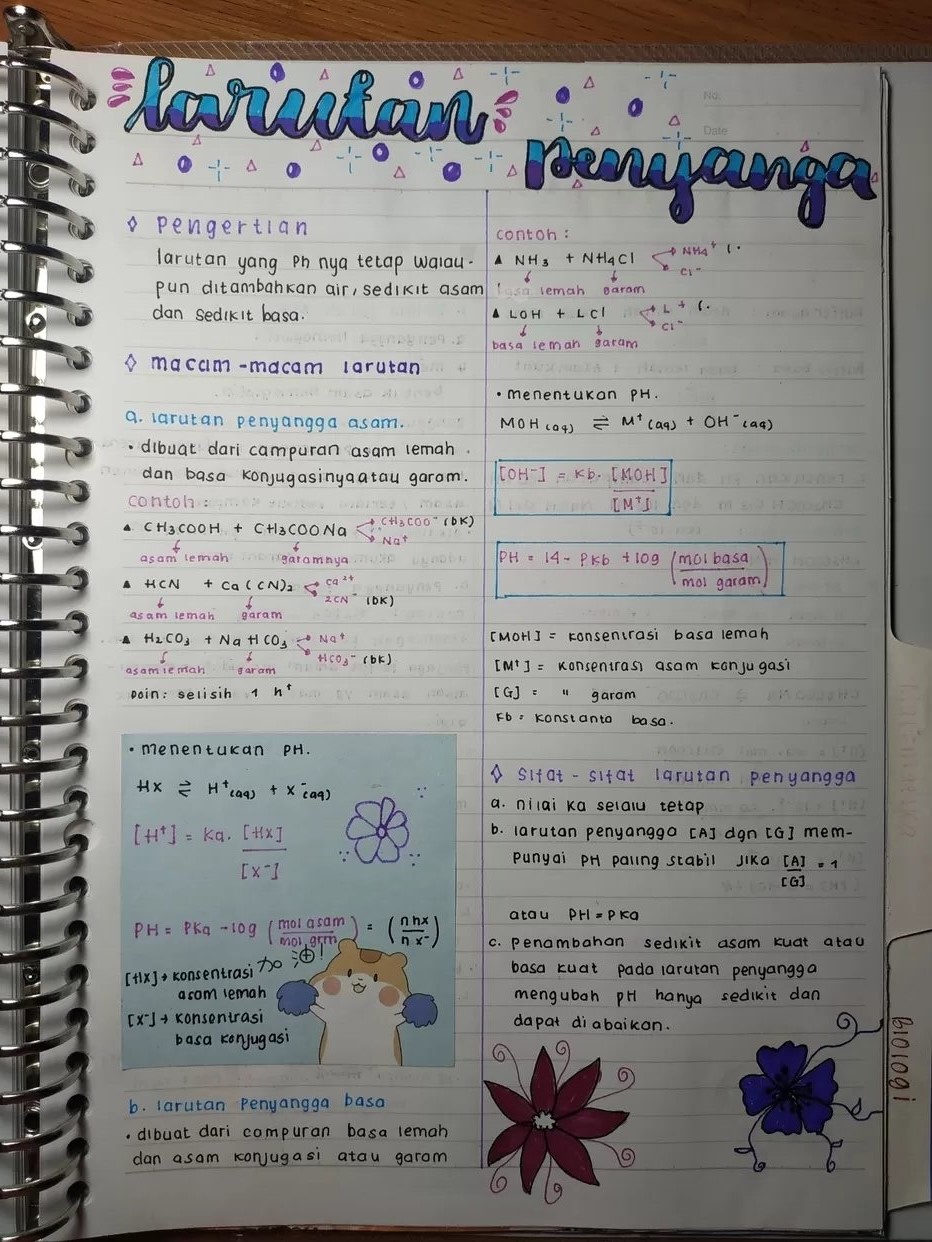 larutan
penyanga
No.
Date
◊ Pengertian
larutan yang Ph nya tetap walau-
pun ditambahkan air, sedikit asam
dan sedikit basa.
◊ macam-macam larutan
a. larutan penyangga asam.
• dibuat dari campuran asam lemah
dan basa konjugasinyaatau garam.
contoh :
▲ CH3COOH + CH3COONa
CH3COO⁻ (bk)
Na⁺
asam lemah garamnya
▲ HCN + Ca(CN)2
Ca²⁺
2CN⁻ (bk)
asam lemah garam
▲ H2CO3 + NaHCO3
Na⁺
HCO3⁻ (bk)
asam lemah garam
poin: selisih 1 h⁺
• menentukan PH.
HX ⇌ H⁺(aq) + X⁻(aq)
[H⁺] = Ka. [HX]
[X⁻]
PH = PKa - log (mol asam / mol grm) = (n hx / n x⁻)
[HX] → konsentrasi
asam lemah
[X⁻] → konsentrasi
basa konjugasi
b. larutan penyangga basa
• dibuat dari campuran basa lemah
dan asam konjugasi atau garam
contoh :
▲ NH3 + NH4Cl
NH4⁺
Cl⁻
basa lemah garam
▲ LOH + LCl
L⁺
Cl⁻
basa lemah garam
• menentukan PH.
MOH(aq) ⇌ M⁺(aq) + OH⁻(aq)
[OH⁻] = Kb. [MOH]
[M⁺]
PH = 14 - PKb + log (mol basa / mol garam)
[MOH] = konsentrasi basa lemah
[M⁺] = konsentrasi asam konjugasi
[G] = " garam
Kb = Konstanta basa.
◊ Sifat-sifat larutan penyangga
a. nilai Ka selalu tetap
b. larutan penyangga [A] dgn [G] mem-
punyai PH paling stabil jika [A] = 1
[G]
atau PH = PKa
c. penambahan sedikit asam kuat atau
basa kuat pada larutan penyangga
mengubah pH hanya sedikit dan
dapat diabaikan.
biologi